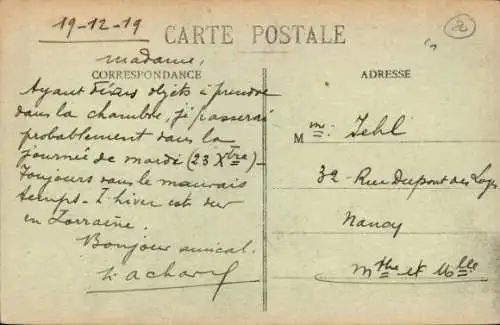 19-12-19
CARTE POSTALE
CORRESPONDANCE
ADRESSE
Madame,
Ayant divers objets à prendre
dans la chambre, j'y passerai
probablement dans la
journée de mardi (23 Xbre) -
Toujours dans le mauvais
temps - L'hiver est dur
en Lorraine.
Bonjour amical.
M me: Jehl
32 - Rue Dupont des Loges
Nancy
Mthe et Mlle